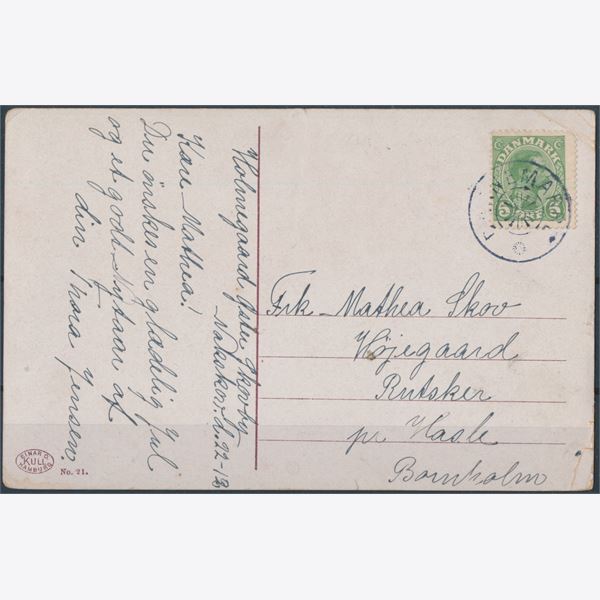 Holmegaard Øster Skovby
Nakskov. d. 22-12
Kære Mathea!
Du ønskes en glædelig Jul
og et godt Nytaar af
din Thora Jensen
DANMARK
5 ØRE 5
Frk. Mathea Skov
Højegaard
Rutsker
pr Hasle
Bornholm
EINAR D. KULI HAMBURG
No. 21.